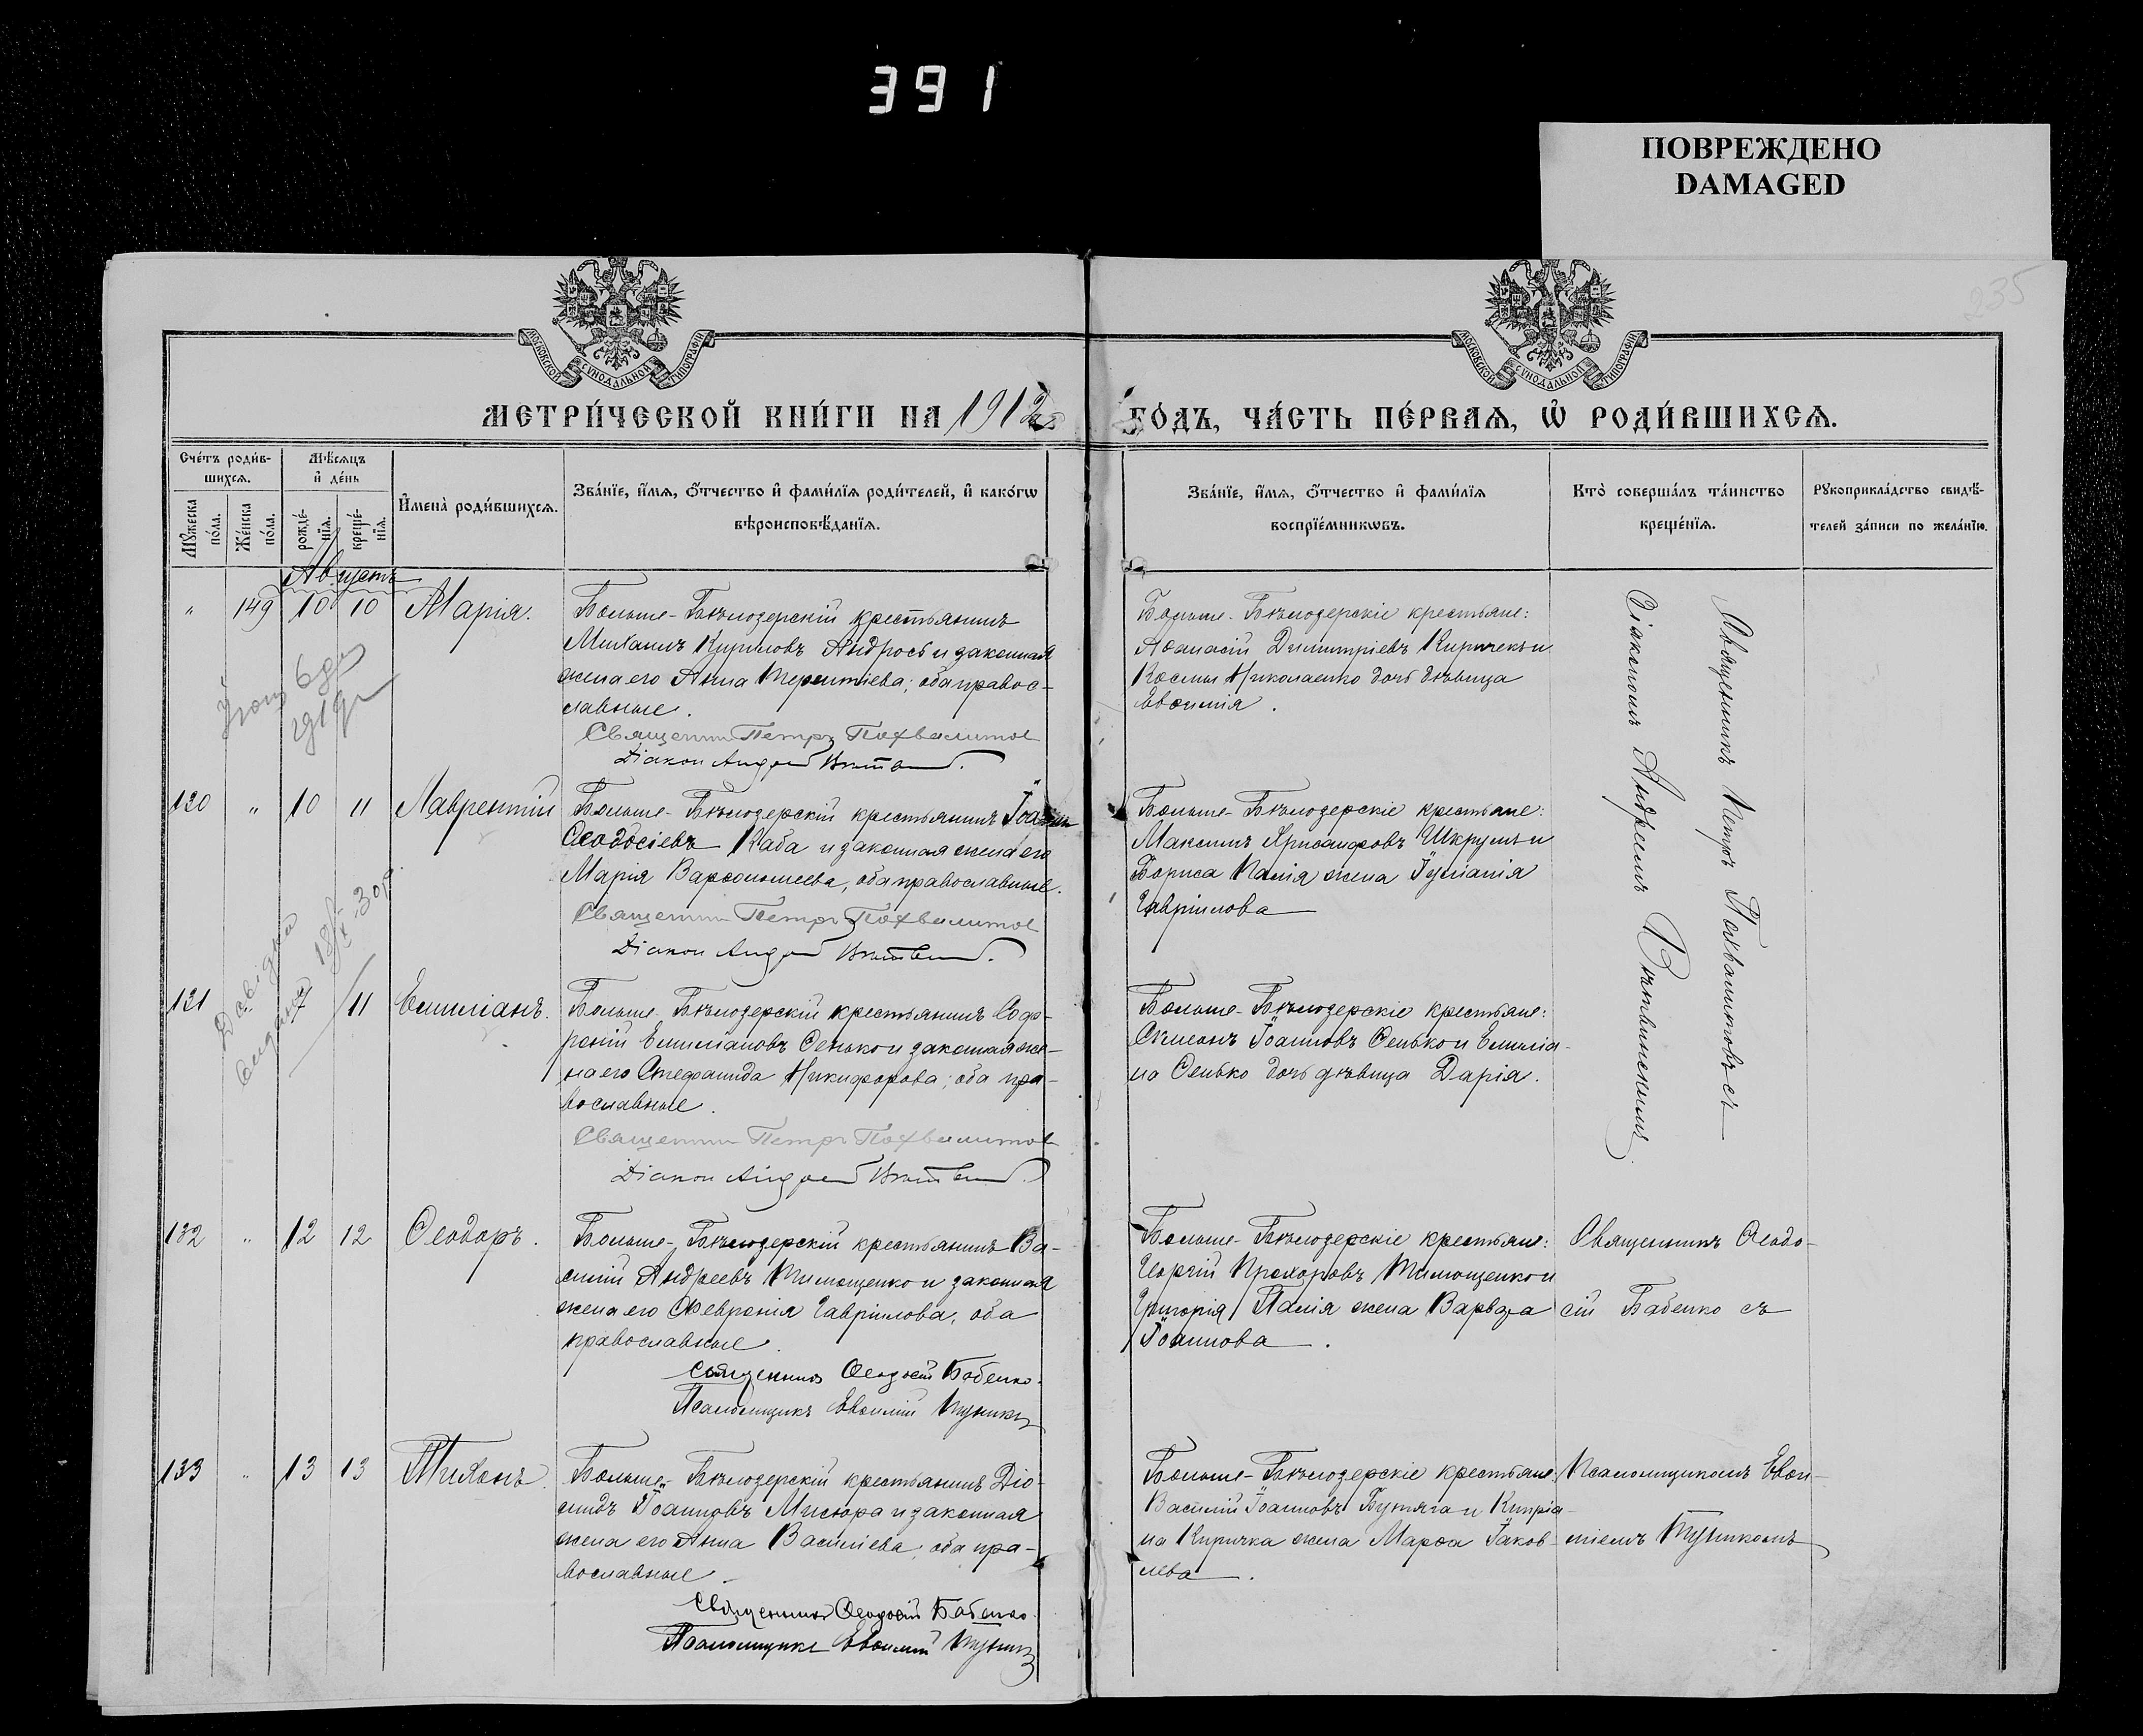 391
ПОВРЕЖДЕНО
DAMAGED
235
МОСКОВСКОЙ СѴНОДАЛЬНОЙ ТИПОГРАФІИ
МОСКОВСКОЙ СѴНОДАЛЬНОЙ ТИПОГРАФІИ
МЕТРИ́ЧЕСКОЙ КНИ́ГИ НА 1912
ГО́ДЪ, ЧА́СТЬ ПЕ́РВАѦ, Ѽ РОДИ́ВШИХСѦ.
Сче́тъ роди́в-
шихсѧ.
Мꙋ́жеска по́ла.
Же́нска по́ла.
Мѣ́сѧцъ
и҆ де́нь
рожде́-
нїѧ.
креще́-
нїѧ.
И҆мена̀ роди́вшихсѧ.
Зва́нїе, и҆́мѧ, ѻ҆́тчество и҆ фами́лїѧ роди́телей, и҆ како́гѡ
вѣроисповѣ́данїѧ.
Зва́нїе, и҆́мѧ, ѻ҆́тчество и҆ фами́лїѧ
воспрїе́мникѡвъ.
Кто̀ соверша́лъ та́инство
креще́нїѧ.
Рꙋкоприкла́дство свидѣ́-
телей за́писи по жела́нїю.
Августъ
" 149 10 10 Марія.
Больше-Бѣлозерскій крестьянинъ
Михаилъ Кириловъ Андрось и законная
жена его Анна Терентіева; оба правос-
лавные.
Священни Петръ Похвалитов
Діакон Андрей
Больше-Бѣлозерскіе крестьяне:
Аѳанасій Димитріевъ Киричекъ и
Космы Николаенко дочь дѣвица
Евѳимія.
Священникъ Петръ Похвалитовъ съ
Діакономъ Андреемъ
130 " 10 11 Лаврентій
Больше-Бѣлозерскій крестьянинъ Іоаннъ
Ѳеодосіевъ Каба и законная жена его
Марія Варѳоломеева, оба православные.
Священни Петръ Похвалитов
Діакон Андрей
Больше-Бѣлозерскіе крестьяне:
Максимъ Хрисанѳовъ Шкрумъ и
Бориса Палія жена Іуліанія
Гавріилова
131 " 7 11 Емиліанъ.
Больше-Бѣлозерскій крестьянинъ Соф-
роній Емиліановъ Сенько и законная же-
на его Стефанида Никифорова; оба пра-
вославные.
Священни Петръ Похвалитов
Діакон Андрей
Больше-Бѣлозерскіе крестьяне:
Симеонъ Іоанновъ Сенько и Емиліа-
на Сенько дочь дѣвица Дарія.
132 " 12 12 Ѳеодоръ.
Больше-Бѣлозерскій крестьянинъ Ва-
силій Андреевъ Тимощенко и законная
жена его Февронія Гавріилова, оба
православные.
Священникъ Ѳеодосій Бабенко.
Псаломщикъ Евѳимій
Больше-Бѣлозерскіе крестьяне:
Георгій Прохоровъ Тимощенко и
Григорія Палія жена Варвара
Іоаннова.
Священникъ Ѳеодо-
сій Бабенко съ
133 " 13 13 Тихонъ.
Больше-Бѣлозерскій крестьянинъ Діо-
мидъ Іоанновъ Мисюра и законная
жена его Анна Василіева; оба пра-
вославные.
Священникъ Ѳеодосій Бабенко.
Псаломщикъ Евѳимій
Больше-Бѣлозерскіе крестьяне:
Василій Іоанновъ Бутяга и Кипріа-
на Киричка жена Марѳа Іаков-
лева.
Псаломщикомъ Евѳи-
міемъ